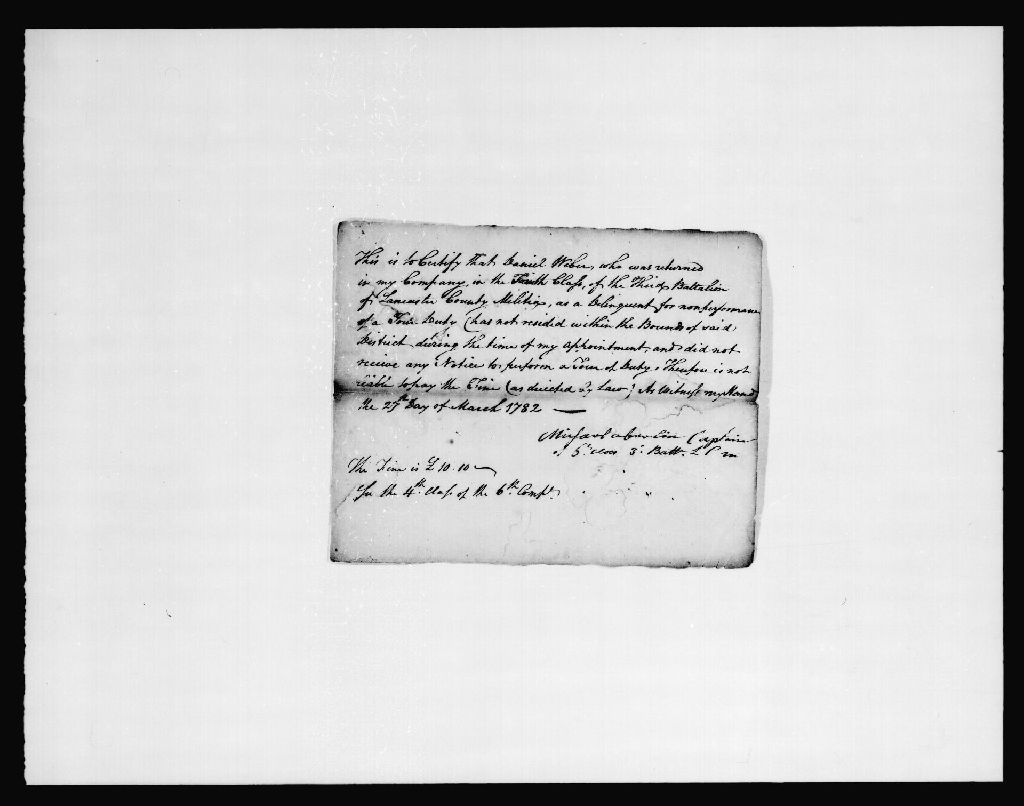 This is to Certify that Daniel Weber, who was returned
in my Company, in the Fourth Class, of the Third Battalion
of Lancaster County Militia, as a Delinquent for nonperformance
of a Tour Duty (has not resided within the Bounds of said
District during the time of my appointment, and did not
receive any Notice to perform a Tour of Duty, Therefore is not
liable to pay the Fine (as directed by Law) As Witness my Hand
the 27th Day of March 1782 —
Captain
of 3d. Batt. L C m
The Fine is £ 10.10 —
In the 4th. Class. of the 6th. Compy.